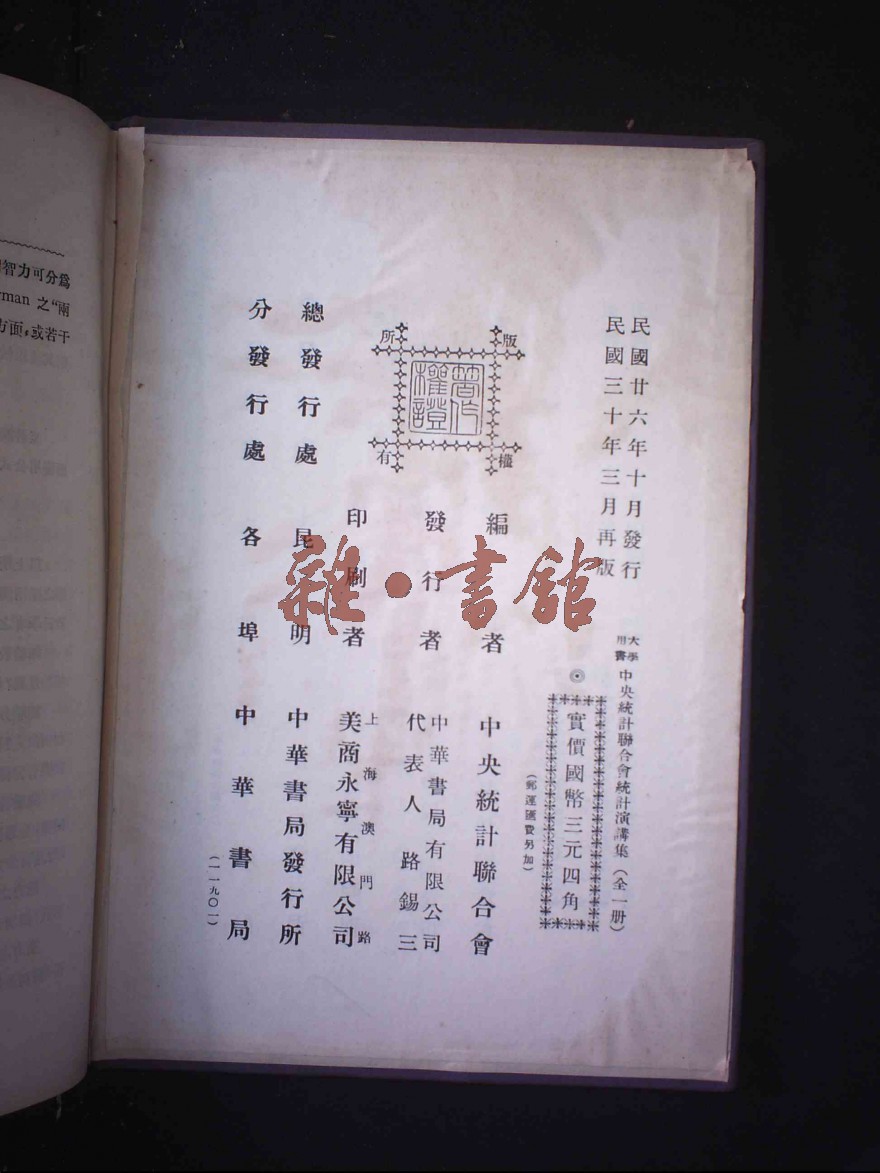 民國廿六年十月發行
民國三十年三月再版
大學用書
中央統計聯合會統計演講集(全一册)
◎實價國幣三元四角
(郵運匯費另加)
版權所有
著作權證
編者 中央統計聯合會
發行者 中華書局有限公司
代表人 路錫三
印刷者 上海澳門路
美商永寧有限公司
總發行處 昆明 中華書局發行所
分發行處 各埠 中華書局
(一一九〇一)
雜·書館
智力可分爲
rman 之“兩
方面,或若干